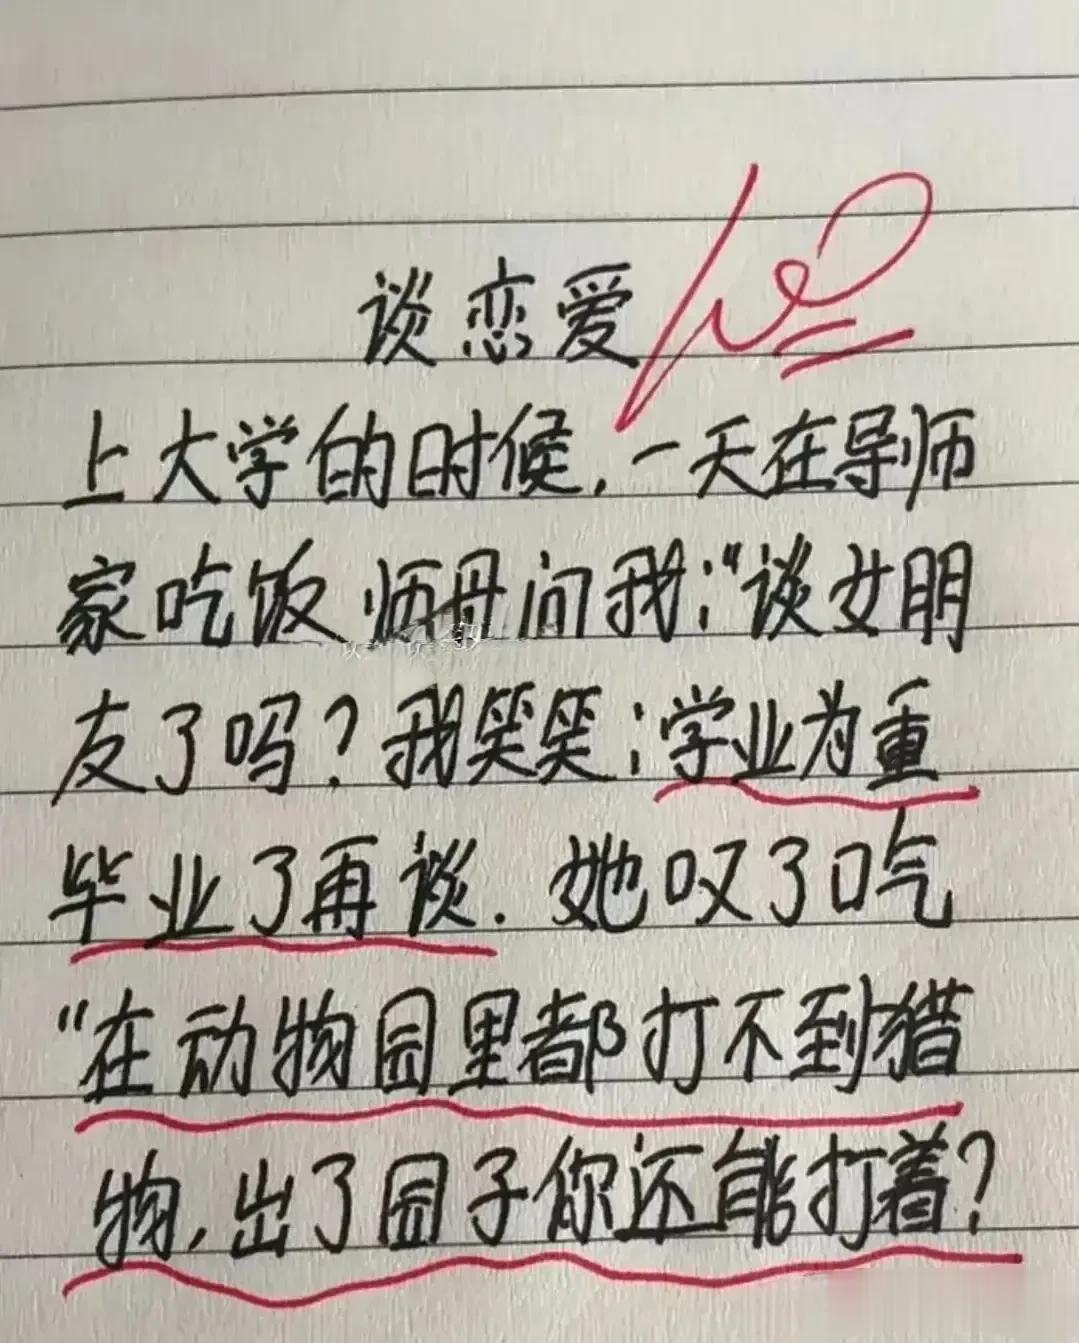 谈恋爱
上大学的时候,一天在导师
家吃饭 师母问我:"谈女朋
友了吗?我笑笑:学业为重
毕业了再谈.她叹了口气
"在动物园里都打不到猎
物,出了园子你还能打着?